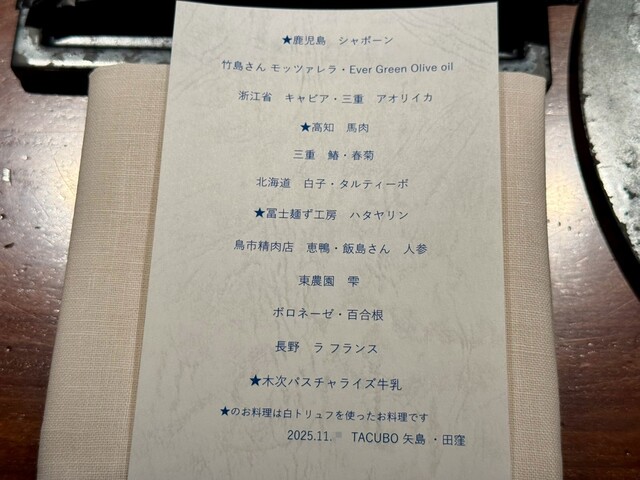 ★鹿児島 シャポーン
竹島さん モッツァレラ・Ever Green Olive oil
浙江省 キャビア・三重 アオリイカ
★高知 馬肉
三重 鰆・春菊
北海道 白子・タルティーボ
★冨士麺ず工房 ハタヤリン
鳥市精肉店 恵鴨・飯島さん 人参
東農園 雫
ボロネーゼ・百合根
長野 ラ フランス
★木次パスチャライズ牛乳
★のお料理は白トリュフを使ったお料理です
2025.11. TACUBO 矢島 ・田窪